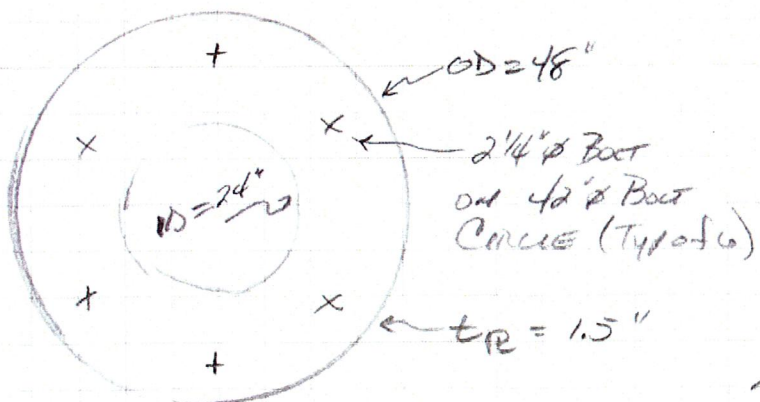 OD = 48"
2 1/4" ø BOLT
ON 42" ø BOLT
CIRCLE (TYP of 6)
ID = 24"
t PL = 1.5"